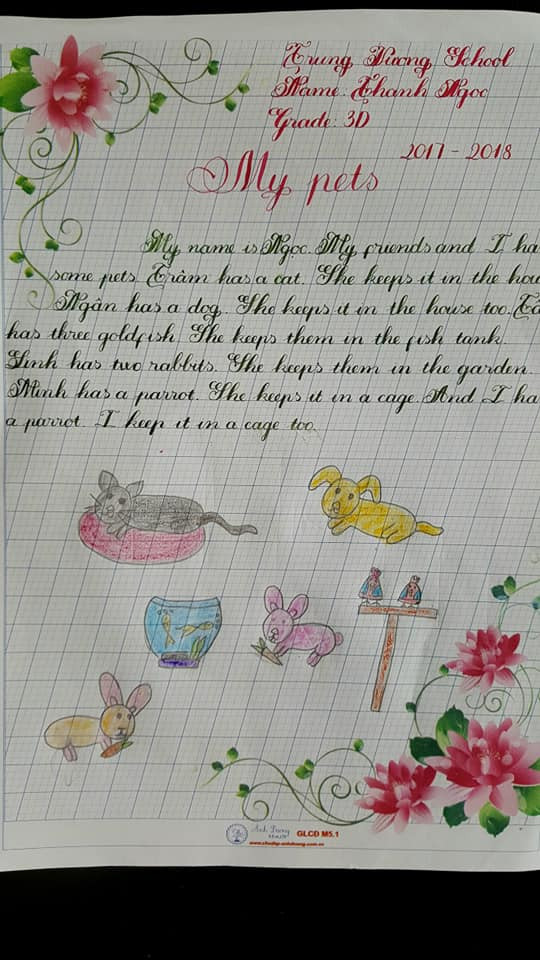 Trưng Vương School
Name: Thanh Ngọc
Grade: 3D
2017 - 2018
My pets
My name is Ngọc. My friends and I ha
some pets. Trâm has a cat. She keeps it in the hou
Ngân has a dog. She keeps it in the house too.
has three goldfish. She keeps them in the fish tank.
Linh has two rabbits. She keeps them in the garden.
Minh has a parrot. She keeps it in a cage. And I ha
a parrot. I keep it in a cage too.
GLCD M5.1